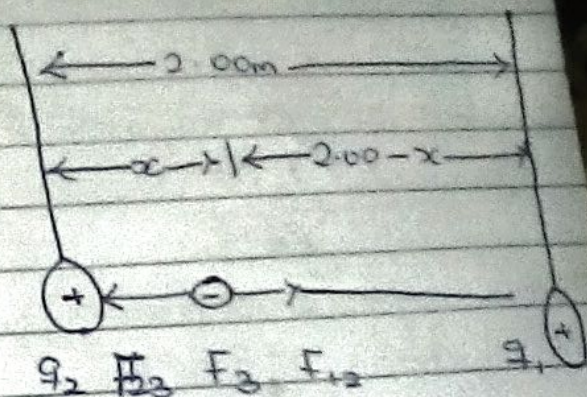 2.00m
x 2.00-x
+ - +
q₂ F₂₃ F₃ F₁₂ q₁